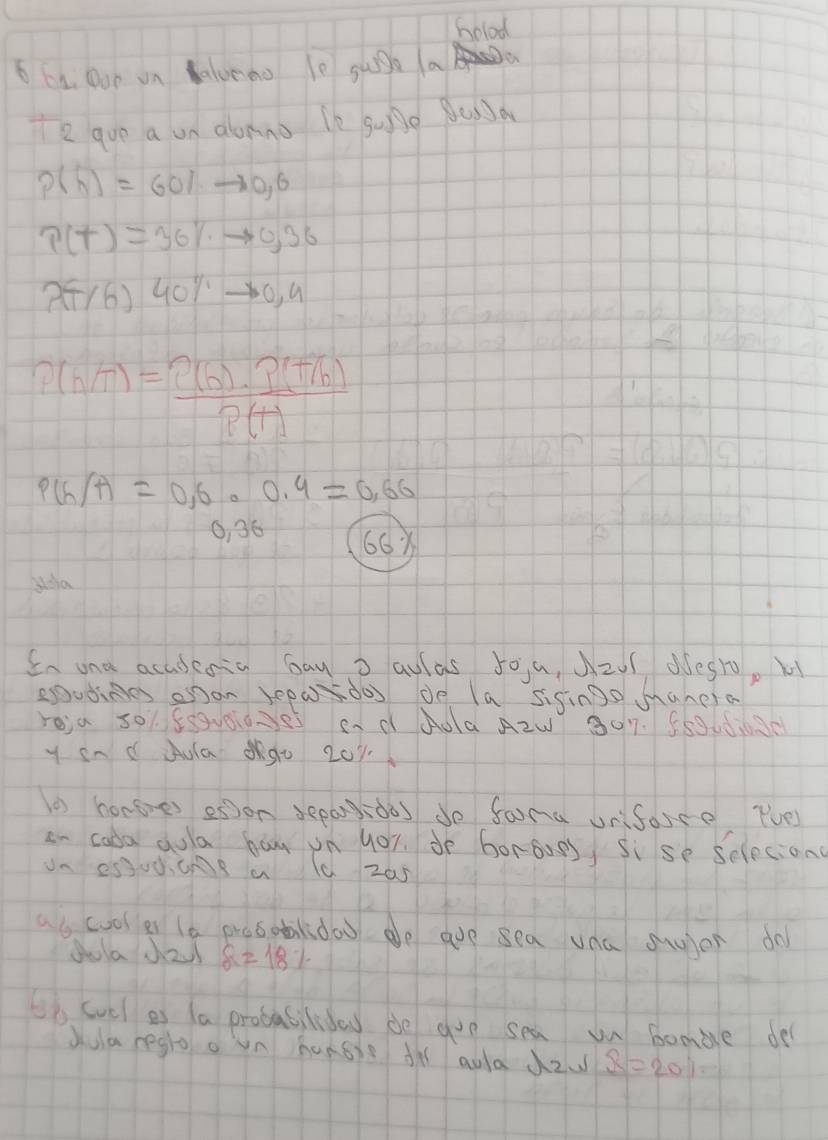 helad
h: que un alumno le guste la
T = que a un alumno le guste
P(h) = 60% → 0,6
P(T) = 36% → 0,36
P(T/h) 40% → 0,4
P(h/T) = P(h) . P(T/h)
P(T)
P(h/T) = 0,6 . 0.4 = 0,66
0,36
66%
En una academia hay 3 aulas roja, Azul Negro, los
estudiantes estan repartidos de la manera
roja 50% Estudiantes en el Aula Azul 30% Estudiante
y en el Aula Negro 20%.
los hombres estan repartidos de forma uniforme Pues
en cada aula hay un 40% de hombres, si se seleciona
un estudiante a la zas
a) cual es la probabilidad de que sea una mujer del
Aula Azul R=18%
b) cual es la probabilidad de que sea un hombre del
Aula negro o un hombre del aula Azul R=20%